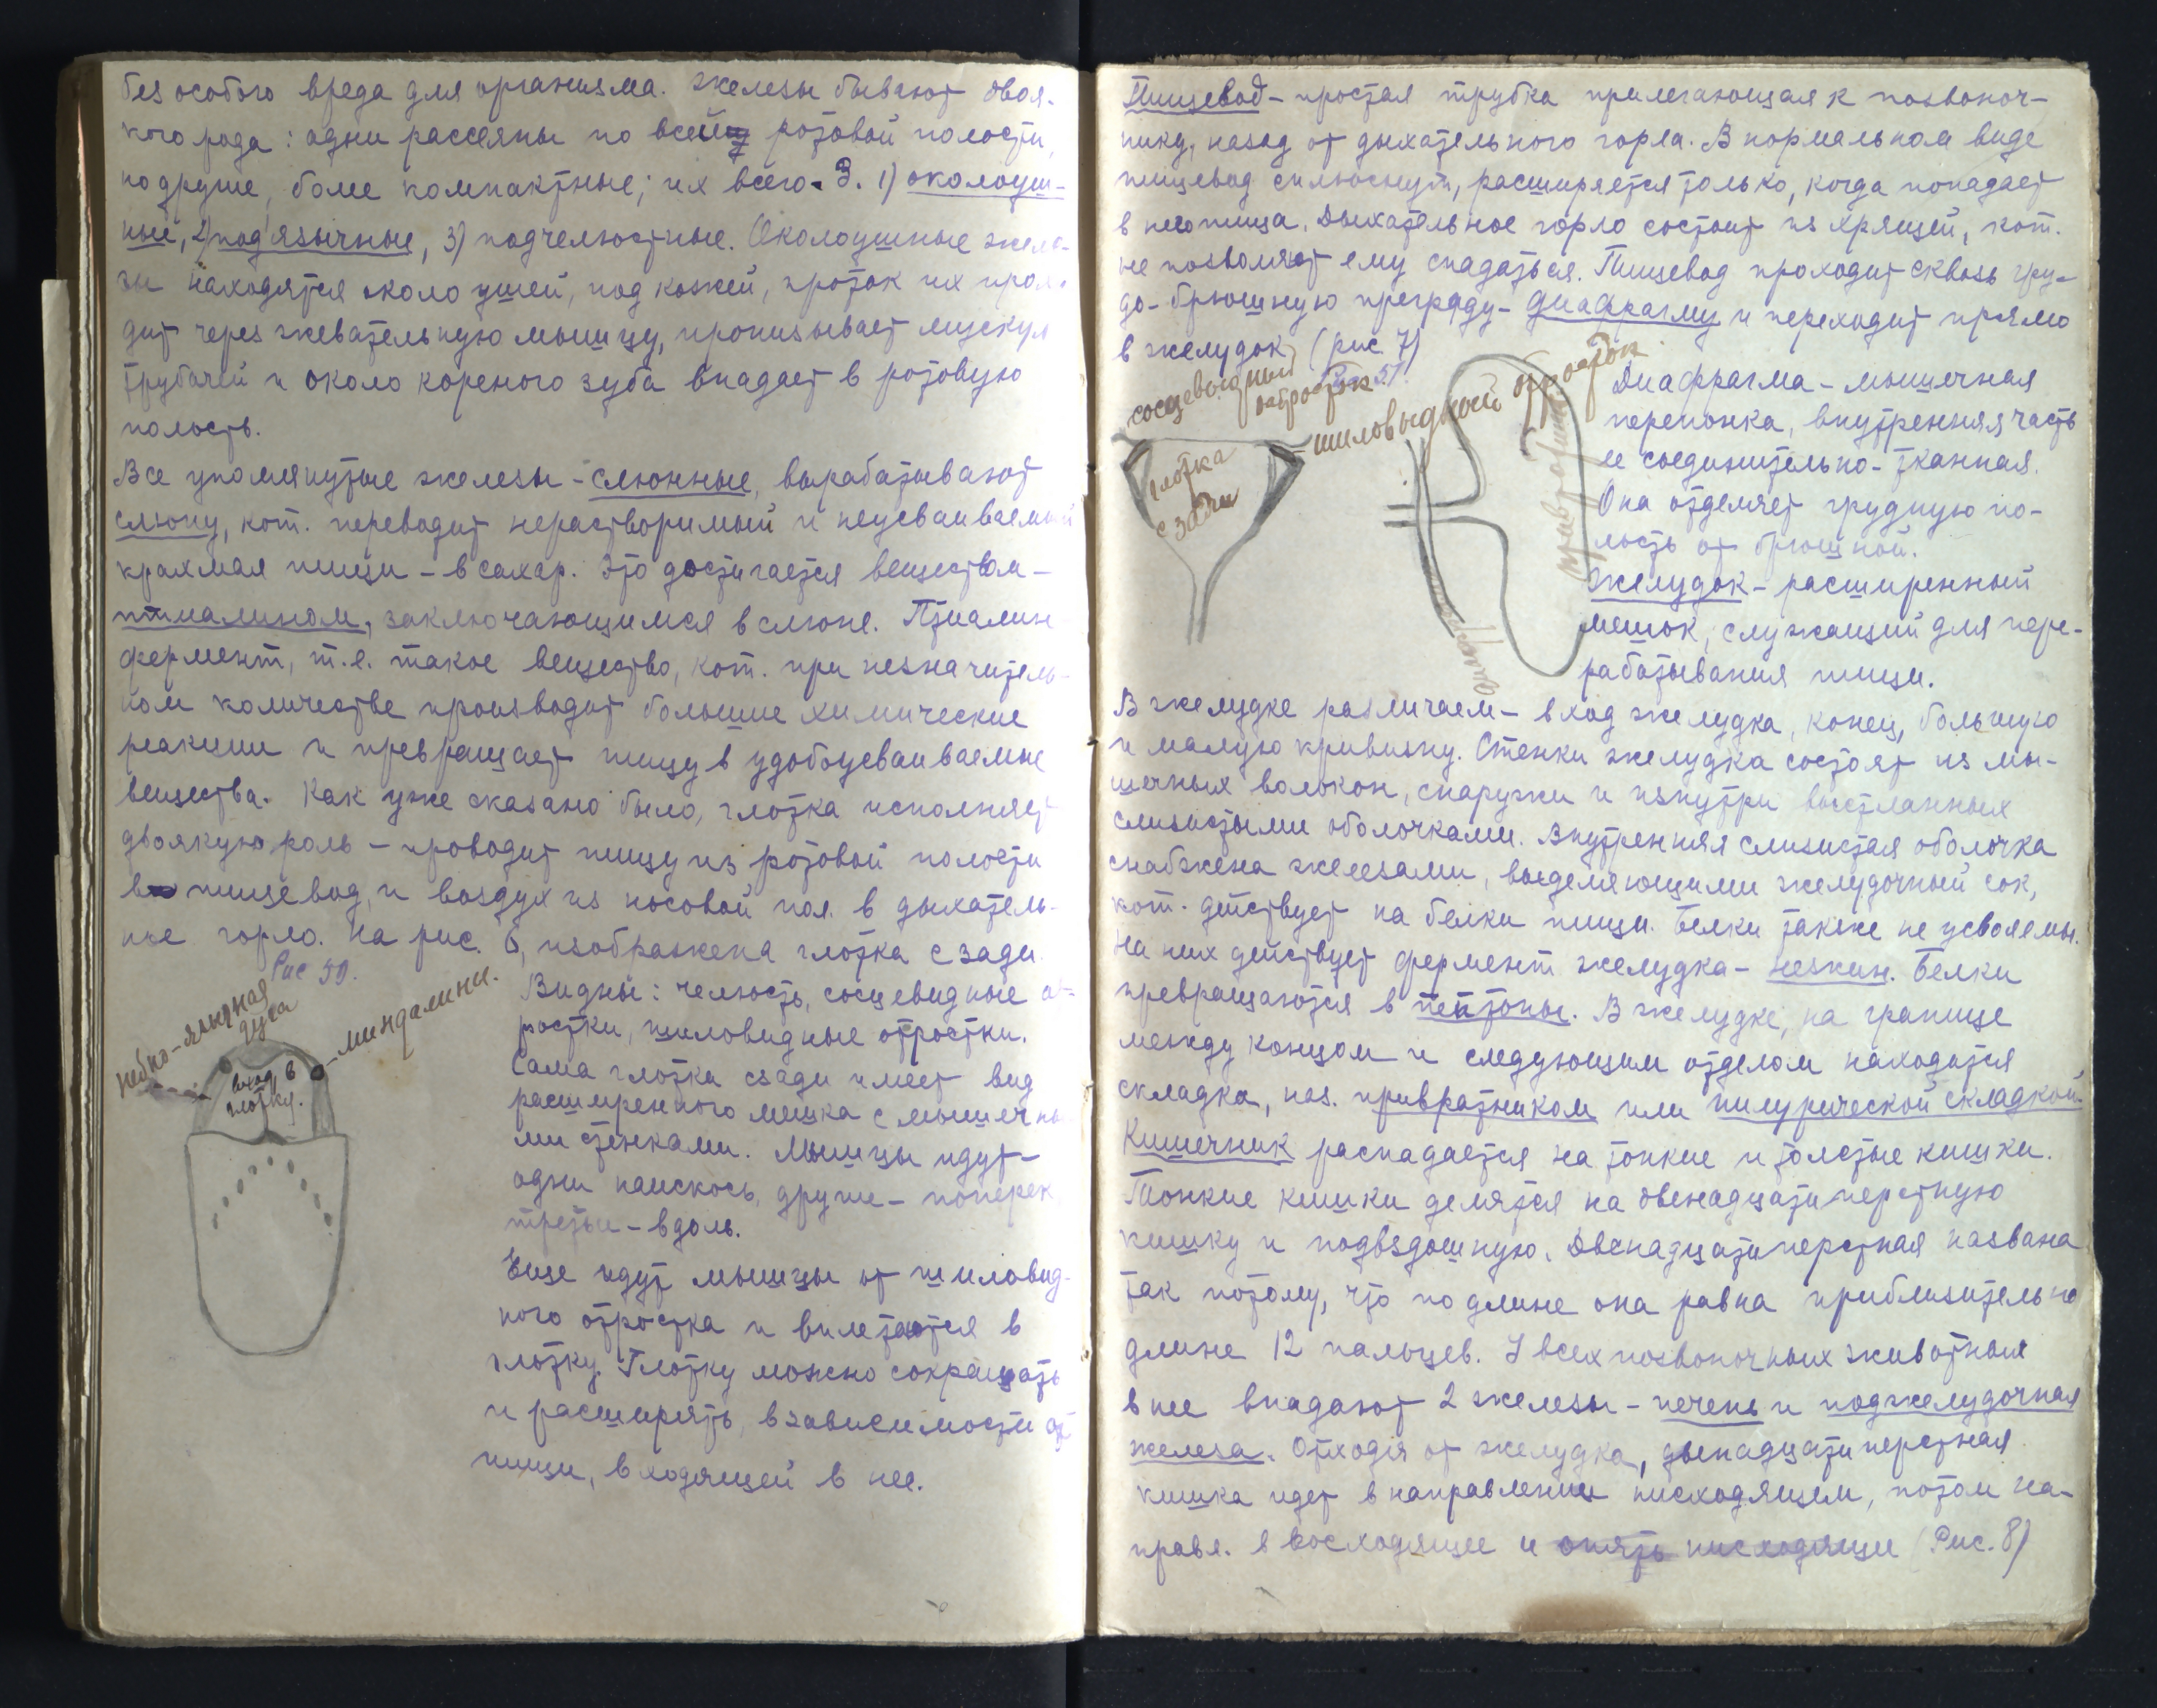 без особого вреда для организма. Железы бывают двоя-
кого рода: одни рассеяны по всей ротовой полости,
но другие, более компактные; их всего 3. 1) околоуш-
ный, 2) подъязычные, 3) подчелюстные. Околоушные желе-
зы находятся около ушей, под кожей, проток их прохо-
дит через жевательную мышцу, пронизывает мускул
трубачей и около кореного зуба впадает в ротовую
полость.
Все упомянутые железы - слюнные, вырабатывают
слюну, кот. переводит нерастворимый и неусваиваемый
крахмал пищи - в сахар. Это достигается веществом -
птиалином, заключающимся в слюне. Птиалин
фермент, т.е. такое вещество, кот. при незначитель-
ном количестве производит большие химические
реакции и превращает пищу в удобоусваиваемые
вещества. Как уже сказано было, глотка исполняет
двоякую роль - проводит пищу из ротовой полости
в пищевод, и воздух из носовой пол. в дыхатель-
ное горло. На рис. 6, изображена глотка сзади.
Рис 50.
небно-язычная
дуга
миндалины.
вход в
глотку.
Видны: челюсть, сосцевидные от-
ростки, шиловидные отростки.
Сама глотка сзади имеет вид
расширенного мешка с мышечны-
ми стенками. Мышцы идут -
одни наискось, другие - поперек
третьи - вдоль.
Еще идут мышцы от шиловид-
ного отростка и вплетаются в
глотку. Глотку можно сокращать
и расширять, в зависимости от
пищи, входящей в нее.
Пищевод - простая трубка прилегающая к позвоноч-
нику, назад от дыхательного горла. В нормальном виде
пищевод сплюснут, расширяется только, когда попадает
в него пища. Дыхательное горло состоит из хрящей, кот.
не позволяют ему спадаться. Пищевод проходит сквозь гру-
до-брюшную преграду - диафрагму и переходит прямо
в желудок (рис. 7)
Рис 51.
сосцевидный
отросток
шиловидный отросток
глотка
сзади
привратник
диафрагма
Диафрагма - мышечная
перепонка, внутренняя часть
ее соединительно-тканная.
Она отделяет грудную по-
лость от брюшной.
Желудок - расширенный
мешок, служащий для пере-
рабатывания пищи.
В желудке различаем - вход желудка, конец, большую
и малую кривизну. Стенки желудка состоят из мы-
шечных волокон, снаружи и изнутри выстланных
слизистыми оболочками. Внутренняя слизистая оболочка
снабжена железами, выделяющими желудочный сок,
кот. действует на белки пищи. Белки также не усвояемы.
На них действует фермент желудка - пепсин. Белки
превращаются в пептоны. В желудке, на границе
между концом и следующим отделом находится
складка, наз. привратником или пилурической складкой.
Кишечник распадается на тонкие и толстые кишки.
Тонкие кишки делятся на двенадцатиперстную
кишку и подвздошную. Двенадцатиперстная названа
так потому, что по длине она равна приблизительно
длине 12 пальцев. У всех позвоночных животных
в нее впадают 2 железы - печень и поджелудочная
железа. Отходя от желудка, двенадцатиперстная
кишка идет в направлении нисходящем, потом на-
правл. в восходящее и опять нисходящее (Рис. 8)